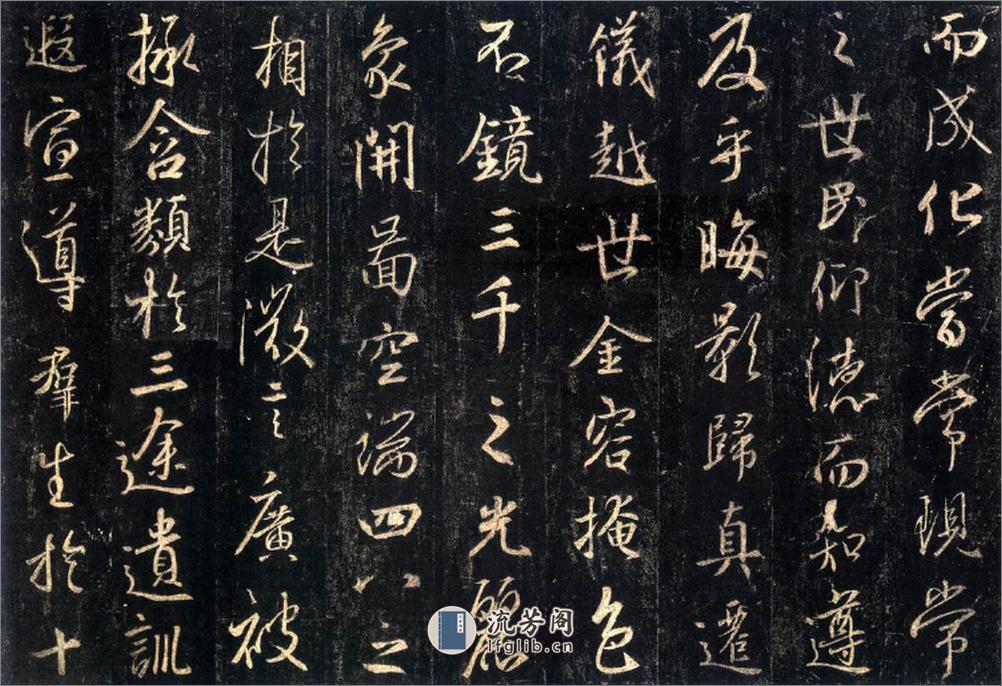 而成化當常現常
之世民仰德而知遵
及乎晦影歸真遷
儀越世金容掩色
不鏡三千之光麗
象開圖空端四八之
相於是微言廣被
拯含類於三途遺訓
遐宣導羣生於十
流芳阁
lfglib.cn